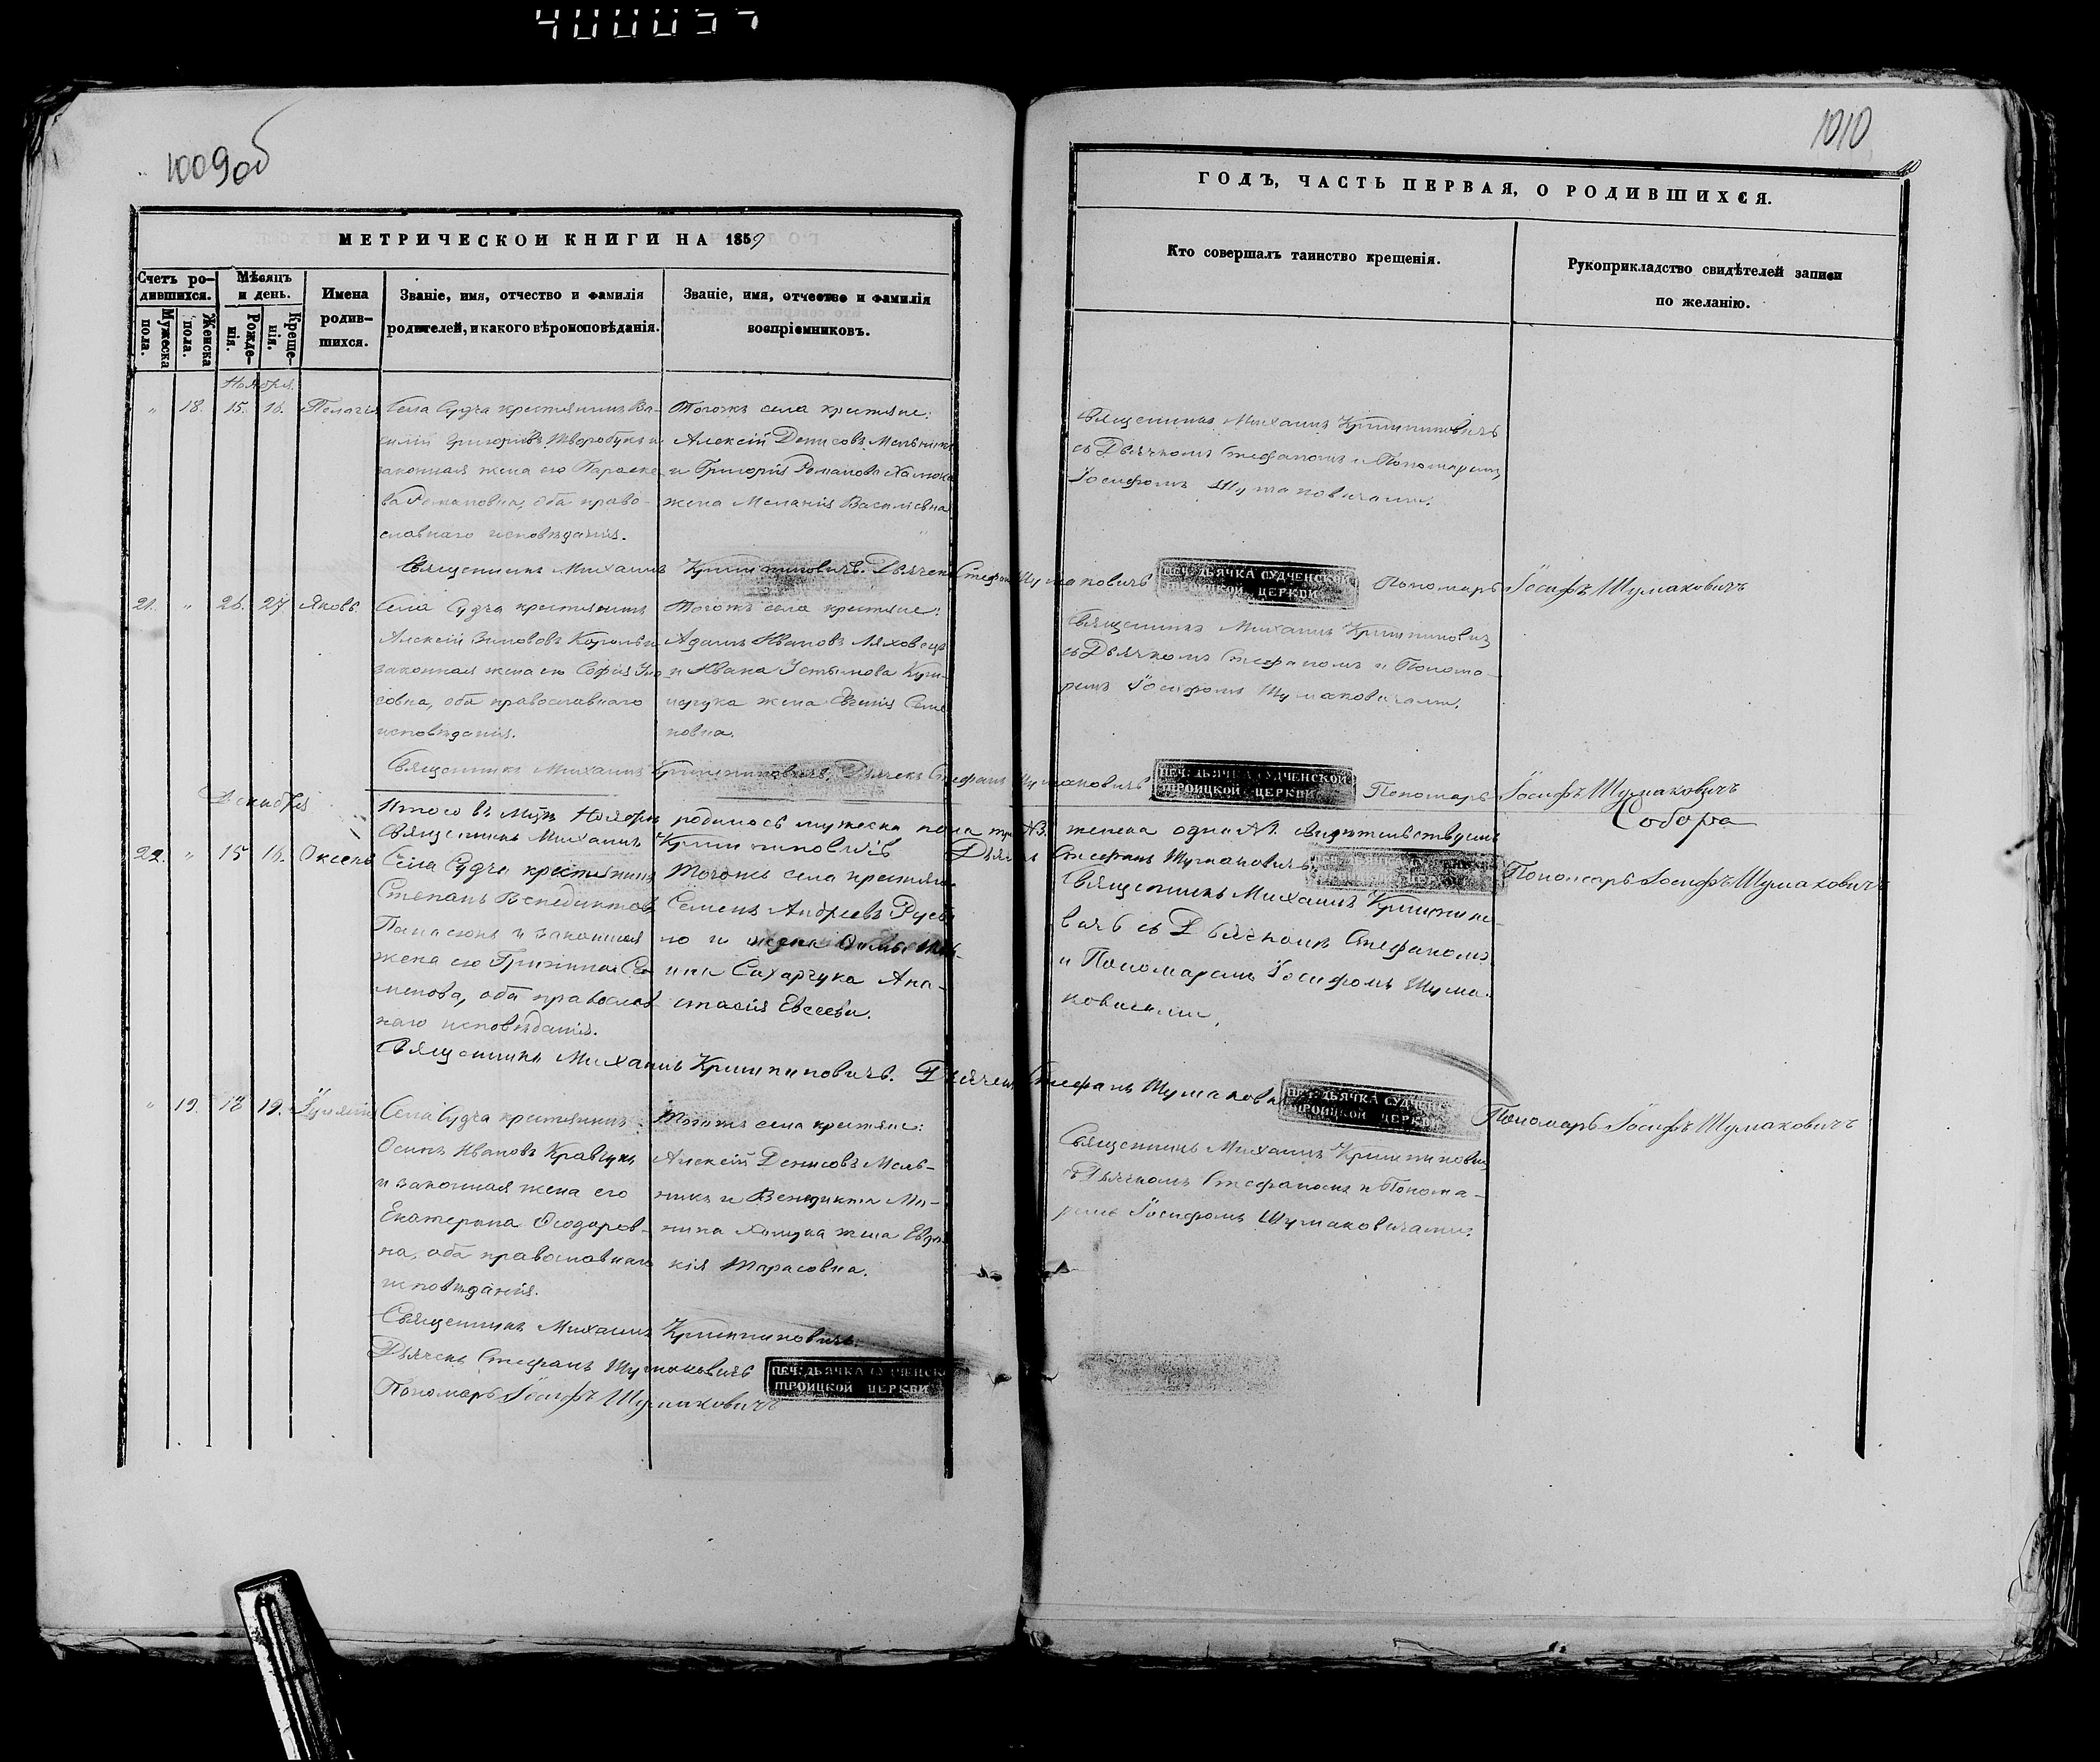 1009об
МЕТРИЧЕСКОЙ КНИГИ НА 1859
Счетъ родившихся.
Мужеска пола.
Женска пола.
Мѣсяцъ и день.
Рожденія.
Крещенія.
Имена родившихся.
Званіе, имя, отчество и фамилія
родителей, и какого вѣроисповѣданія.
Званіе, имя, отчество и фамилія
воспріемниковъ.
Ноября.
" 18. 15. 16. Пелагія
Села Судча крестьянинъ Ва-
силій Григоріевъ и
законная жена его Параске
ва Романовна, оба право-
славнаго исповѣданія.
Тогожъ села крестьяне:
Алексій Денисовъ Мельникъ
и Григорія Романова
жена Меланія Василіевна
Священникъ Михаилъ Дьячекъ Стефанъ Шумаковичъ
ПЕЧ: ДЬЯЧКА СУДЧЕНСКОЙ
ТРОИЦКОЙ ЦЕРКВИ
Пономарь Іосифъ Шумаковичъ
21. " 26. 27 Яковъ
Села Судча крестьянинъ
Алексій и
законная жена его Софія
совна, оба православнаго
исповѣданія.
Тогожъ села крестьяне:
Адамъ Ивановъ Ляховецъ
и Ивана Устимова
жена Евгенія Семе
новна.
Священникъ Михаилъ Дьячекъ Стефанъ Шумаковичъ
ПЕЧ: ДЬЯЧКА СУДЧЕНСКОЙ
ТРОИЦКОЙ ЦЕРКВИ
Пономарь Іосифъ Шумаковичъ
Декабря
Итого въ Ноябрѣ родилось мужеска пола три №3. женска одна №1. свидѣтельствуемъ
Священникъ Михаилъ Дьячекъ Стефанъ Шумаковичъ Пономарь Іосифъ Шумаковичъ
22. " 15 16. Оксенъ
Села Судча крестьянинъ
Степанъ Венедиктовъ
Панасюкъ и законная
жена его Се
менова, оба православ
наго исповѣданія.
Тогожъ села крестьяне
Семенъ Андреевъ
но и жена
Сахарчука Ана-
стасія Евсеева.
Священникъ Михаилъ Дьячекъ Стефанъ Шумакович
ПЕЧ: ДЬЯЧКА СУДЧЕНС
ТРОИЦКОЙ ЦЕРКВИ
Пономарь Іосифъ Шумаковичъ
" 19. 18 19.
Села Судча крестьянинъ
Осипъ Ивановъ Кравчукъ
и законная жена его
Екатерина Ѳеодоров-
на, оба православнаго
исповѣданія.
Тогожъ села крестьяне:
Алексій Денисовъ Мель-
никъ и Венедикта Ми-
жена Евдо-
кія Тарасовна.
Священникъ Михаилъ
Дьячекъ Стефанъ Шумаковичъ
ПЕЧ: ДЬЯЧКА СУДЧЕНСК
ТРОИЦКОЙ ЦЕРКВИ
Пономарь Іосифъ Шумаковичъ
1010
ГОДЪ, ЧАСТЬ ПЕРВАЯ, О РОДИВШИХСЯ.
Кто совершалъ таинство крещенія.
Рукоприкладство свидѣтелей записи
по желанію.
Священникъ Михаилъ
съ Дьячкомъ Стефаномъ и Пономаремъ
Іосифомъ Шумаковичами.
Священникъ Михаилъ
съ Дьячкомъ Стефаномъ и Понома-
ремъ Іосифомъ Шумаковичами.
Священникъ Михаилъ
вичъ съ Дьячкомъ Стефаномъ
и Пономаремъ Іосифомъ Шума-
ковичами.
Священникъ Михаилъ
съ Дьячкомъ Стефаномъ и Понома-
ремъ Іосифомъ Шумаковичами.